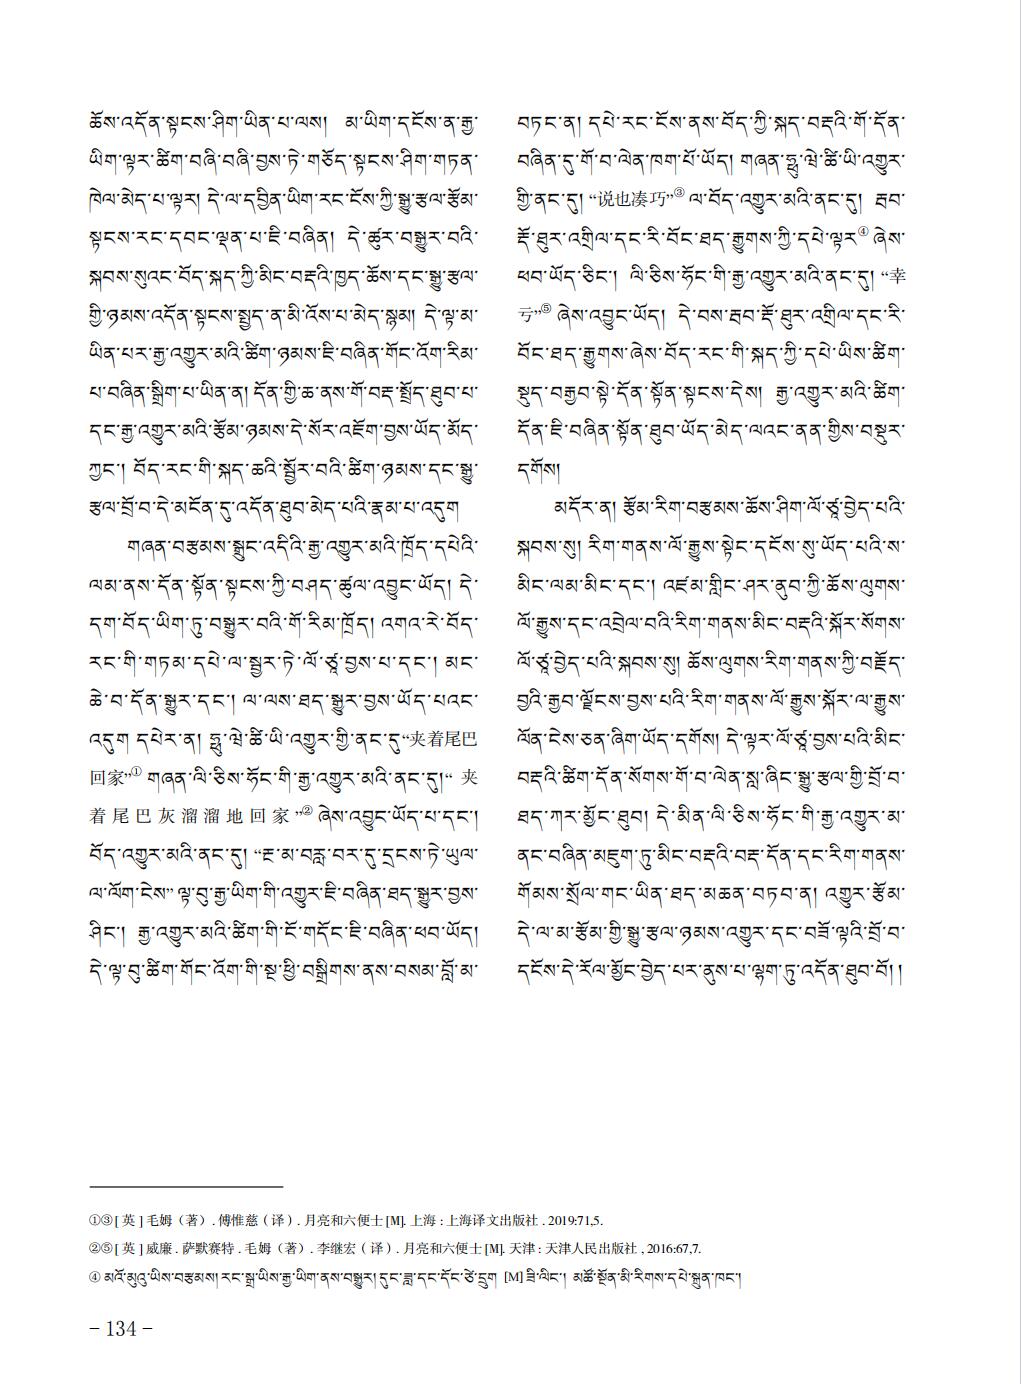 ཆོས་འདོན་སྟངས་ཤིག་ཡིན་པ་ལས། མ་ཡིག་དངོས་ན་རྒྱ་
ཡིག་ལྟར་ཚིག་བཞི་བཞི་བྱས་ཏེ་གཅོད་སྟངས་ཤིག་གཏན་
ཁེལ་མེད་པ་ལྟར། དེ་ལ་དབྱིན་ཡིག་རང་ངོས་ཀྱི་སྒྱུ་རྩལ་རྩོམ་
སྟངས་རང་དབང་ལྡན་པ་ཇི་བཞིན། དེ་ཚུར་བསྒྱུར་བའི་
སྐབས་སུའང་བོད་སྐད་ཀྱི་མིང་བརྡའི་ཁྱད་ཆོས་དང་སྒྱུ་རྩལ་
གྱི་ཉམས་འདོན་སྟངས་སྤྱད་ན་མི་འོས་པ་མེད་སྙམ། དེ་ལྟ་མ་
ཡིན་པར་རྒྱ་འགྱུར་མའི་ཚིག་ཉམས་ཇི་བཞིན་གོང་འོག་རིམ་
པ་བཞིན་སྒྲིག་པ་ཡིན་ན། དོན་གྱི་ཆ་ནས་གོ་བརྡ་སྤྲོད་ཐུབ་པ་
དང་རྒྱ་འགྱུར་མའི་རྩོམ་ཉམས་དེ་སོར་འཇོག་བྱས་ཡོད་མོད་
ཀྱང་། བོད་རང་གི་སྐད་ཆའི་སྦྱོར་བའི་ཚིག་ཉམས་དང་སྒྱུ་
རྩལ་བྲོ་བ་དེ་མངོན་དུ་འདོན་ཐུབ་མེད་པའི་རྣམ་པ་འདུག
གཞན་བརྩམས་སྒྲུང་འདིའི་རྒྱ་འགྱུར་མའི་ཁྲོད་དཔེའི་
ལམ་ནས་དོན་སྟོན་སྟངས་ཀྱི་བཤད་ཚུལ་འབྱུང་ཡོད། དེ་
དག་བོད་ཡིག་ཏུ་བསྒྱུར་བའི་གོ་རིམ་ཁྲོད། འགའ་རེ་བོད་
རང་གི་གཏམ་དཔེ་ལ་སྦྱར་ཏེ་ལོ་ཙཱ་བྱས་པ་དང་། མང་
ཆེ་བ་དོན་སྒྱུར་དང་། ལ་ལས་ཐད་སྒྱུར་བྱས་ཡོད་པའང་
འདུག དཔེར་ན། ཧྥུ་ཝེ་ཚི་ཡི་འགྱུར་གྱི་ནང་དུ“夹着尾巴
回家”① གཞན་ལི་ཅིས་ཧོང་གི་རྒྱ་འགྱུར་མའི་ནང་དུ།“ 夹
着尾巴灰溜溜地回家”② ཞེས་འབྱུང་ཡོད་པ་དང་།
བོད་འགྱུར་མའི་ནང་དུ། “རྔ་མ་བརླ་བར་དུ་དྲངས་ཏེ་ཡུལ་
ལ་ལོག་ངེས” ལྟ་བུ་རྒྱ་ཡིག་གི་འགྱུར་ཇི་བཞིན་ཐད་སྒྱུར་བྱས་
ཤིང་། རྒྱ་འགྱུར་མའི་ཚིག་གི་ངོ་གདོང་ཇི་བཞིན་ཕབ་ཡོད།
དེ་ལྟ་བུ་ཚིག་གོང་འོག་གི་སྔ་ཕྱི་བསྒྲིགས་ནས་བསམ་བློ་མ་
བཏང་ན། དཔེ་རང་ངོས་ནས་བོད་ཀྱི་སྐད་བརྡའི་གོ་དོན་
བཞིན་དུ་གོ་བ་ལེན་ཁག་པོ་ཡོད། གཞན་ཧྥུ་ཝེ་ཚི་ཡི་འགྱུར་
གྱི་ནང་དུ། “说也凑巧”③ ལ་བོད་འགྱུར་མའི་ནང་དུ། རྦབ་
རྡོ་ཐུར་འགྲིལ་དང་རི་བོང་ཐད་རྒྱུགས་ཀྱི་དཔེ་ལྟར④ ཞེས་
ཕབ་ཡོད་ཅིང་། ལི་ཅིས་ཧོང་གི་རྒྱ་འགྱུར་མའི་ནང་དུ། “幸
亏”⑤ ཞེས་འབྱུང་ཡོད། དེ་བས་རྦབ་རྡོ་ཐུར་འགྲིལ་དང་རི་
བོང་ཐད་རྒྱུགས་ཞེས་བོད་རང་གི་སྐད་ཀྱི་དཔེ་ཡིས་ཚིག་
སྡུད་བརྒྱབ་སྟེ་དོན་སྟོན་སྟངས་དེས། རྒྱ་འགྱུར་མའི་ཚིག་
དོན་ཇི་བཞིན་སྟོན་ཐུབ་ཡོད་མེད་ལའང་ནན་གྱིས་བསྡུར་
དགོས།
མདོར་ན། རྩོམ་རིག་བརྩམས་ཆོས་ཤིག་ལོ་ཙཱ་བྱེད་པའི་
སྐབས་སུ། རིག་གནས་ལོ་རྒྱུས་སྟེང་དངོས་སུ་ཡོད་པའི་ས་
མིང་ལམ་མིང་དང་། འཛམ་གླིང་ཤར་ནུབ་ཀྱི་ཆོས་ལུགས་
ལོ་རྒྱུས་དང་འབྲེལ་བའི་རིག་གནས་མིང་བརྡའི་སྐོར་སོགས་
ལོ་ཙཱ་བྱེད་པའི་སྐབས་སུ། ཆོས་ལུགས་རིག་གནས་ཀྱི་བརྗོད་
བྱའི་རྒྱབ་ལྗོངས་བྱས་པའི་རིག་གནས་ལོ་རྒྱུས་སྐོར་ལ་རྒྱུས་
ལོན་ངེས་ཅན་ཞིག་ཡོད་དགོས། དེ་ལྟར་ལོ་ཙཱ་བྱས་པའི་མིང་
བརྡའི་ཚིག་དོན་སོགས་གོ་བ་ལེན་སླ་ཞིང་སྒྱུ་རྩལ་གྱི་བྲོ་བ་
ཐད་ཀར་མྱོང་ཐུབ། དེ་མིན་ལི་ཅིས་ཧོང་གི་རྒྱ་འགྱུར་མ་
ནང་བཞིན་མཇུག་ཏུ་མིང་བརྡའི་བརྡ་དོན་དང་རིག་གནས་
གོམས་སྲོལ་གང་ཡིན་ཐད་མཆན་བཏབ་ན། འགྱུར་རྩོམ་
དེ་ལ་མ་རྩོམ་གྱི་སྒྱུ་རྩལ་ཉམས་འགྱུར་དང་བཟོ་ལྟའི་བྲོ་བ་
དངོས་དེ་རོལ་མྱོང་བྱེད་པར་ནུས་པ་ལྷག་ཏུ་འདོན་ཐུབ་བོ། །
①③ [ 英 ] 毛姆（著）. 傅惟慈（译）. 月亮和六便士 [M]. 上海 : 上海译文出版社 . 2019:71,5.
②⑤ [ 英 ] 威廉 . 萨默赛特 . 毛姆（著）. 李继宏（译）. 月亮和六便士 [M]. 天津 : 天津人民出版社 , 2016:67,7.
④ མའོ་མུའུ་ཡིས་བརྩམས། རང་སྒྲ་ཡིས་རྒྱ་ཡིག་ནས་བསྒྱུར། དུང་ཟླ་དང་དོང་ཙེ་དྲུག [M] ཟི་ལིང་། མཚོ་སྔོན་མི་རིགས་དཔེ་སྐྲུན་ཁང་།
– 134 –